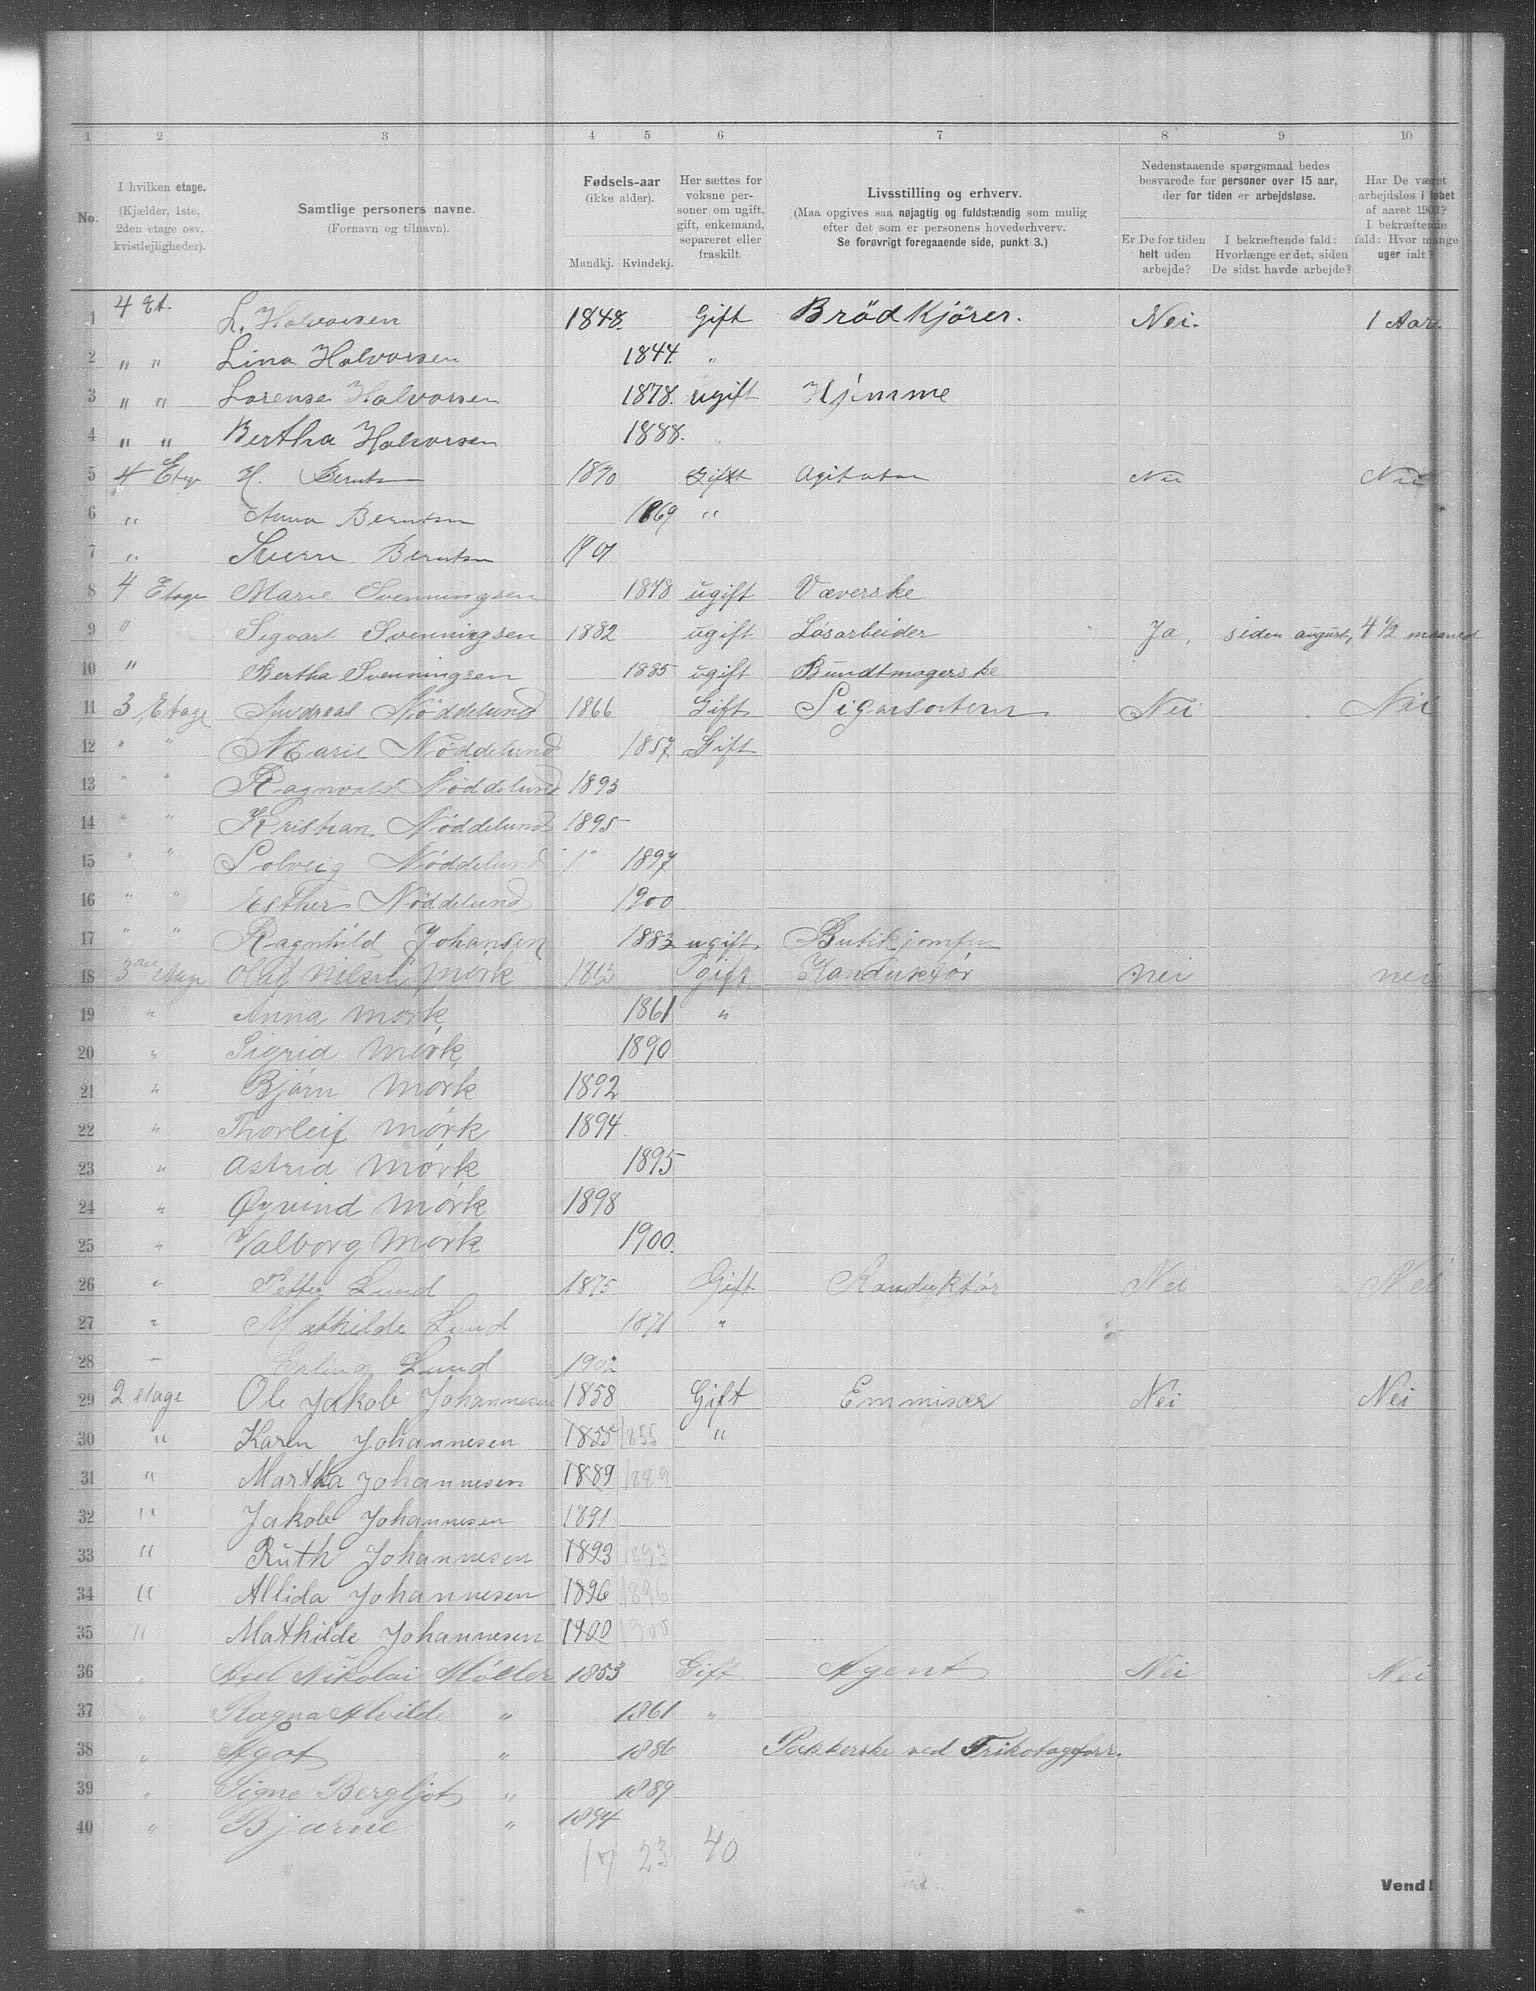 1 2 3 4 5 6 7 8 9 10
No. I hvilken etage. (Kjælder, 1ste, 2den etage osv. kvistlejligheder). Samtlige personers navne. (Fornavn og tilnavn). Fødsels-aar (ikke alder). Mandkj. Kvindekj. Her sættes for voksne personer om ugift, gift, enkemand, separeret eller fraskilt. Livsstilling og erhverv. (Maa opgives saa nøjagtig og fuldstændig som mulig efter det som er personens hovederhverv. Se forøvrigt foregaaende side, punkt 3.) Nedenstaaende spørgsmaal bedes besvarede for personer over 15 aar, der for tiden er arbejdsløse. Er De for tiden helt uden arbejde? I bekræftende fald: Hvorlænge er det, siden De sidst havde arbejde? Har De været arbejdsløs i løbet af aaret 1902? I bekræftende fald: Hvor mange uger ialt?
1 4 Et. L. Halvorsen 1848. Gift Brödkjörer. Nei. 1 Aar
2 " " Lina Halvorsen 1844. "
3 " " Lorense Halvorsen 1878. ugift Hjemme
4 " " Bertha Halvorsen 1888. "
5 4 Etage H. Berntsen 1870 Gift Agitator Nei Nei
6 " Anna Berntsen 1869 "
7 " Sverre Berntsen 1901
8 4 Etage Marie Svenningsen 1848 ugift Væverske
9 " Sigvart Svenningsen 1882 ugift Løsarbeider Ja, siden august, 4 1/2 maaned
10 " Bertha Svenningsen 1885 ugift Bundtmagerske
11 3 Etage Andreas Nöddelund 1866 Gift Sigarsortern Nei Nei
12 " " Marie Nöddelund 1857 Gift
13 " " Ragnvald Nöddelund 1893
14 " " Kristian Nöddelund 1895
15 " " Solveig Nöddelund 1" 1897
16 " " Esther Nöddelund 1900
17 " " Ragnhild Johansen 1883 ugift Butikjomfru
18 3die etage Olaf Nilsen Mørk 1863 gift Konduktør nei nei
19 " Anna Mørk 1861 "
20 " Sigrid Mørk 1890
21 " Bjørn Mørk 1892
22 " Thorleif Mørk 1894
23 " Astrid Mørk 1895
24 " Øyvind Mørk 1898
25 " Valborg Mørk 1900.
26 " Petter Lund 1875 Gift Konduktør Nei Nei
27 " Mathilde Lund 1871 "
28 " Erling Lund 1902
29 2 etage Ole Jakob Johannesen 1858 Gift Emmisær Nei Nei
30 " Karen Johannesen 1855 1855 "
31 " Martha Johannesen 1889 1889
32 " Jakob Johannesen 1891
33 " Ruth Johannesen 1893 1893
34 " Allida Johannesen 1896 1896
35 " Mathilde Johannesen 1900 1900
36 " Axel Nikolai Møller 1853 Gift Agent Nei Nei
37 " Ragna Alvilde " 1861 "
38 " Agot " 1886 Pakkerske ved Trikotageforr.
39 " Signe Bergljot " 1889
40 " Bjarne " 1894
17 23 40
Vend!